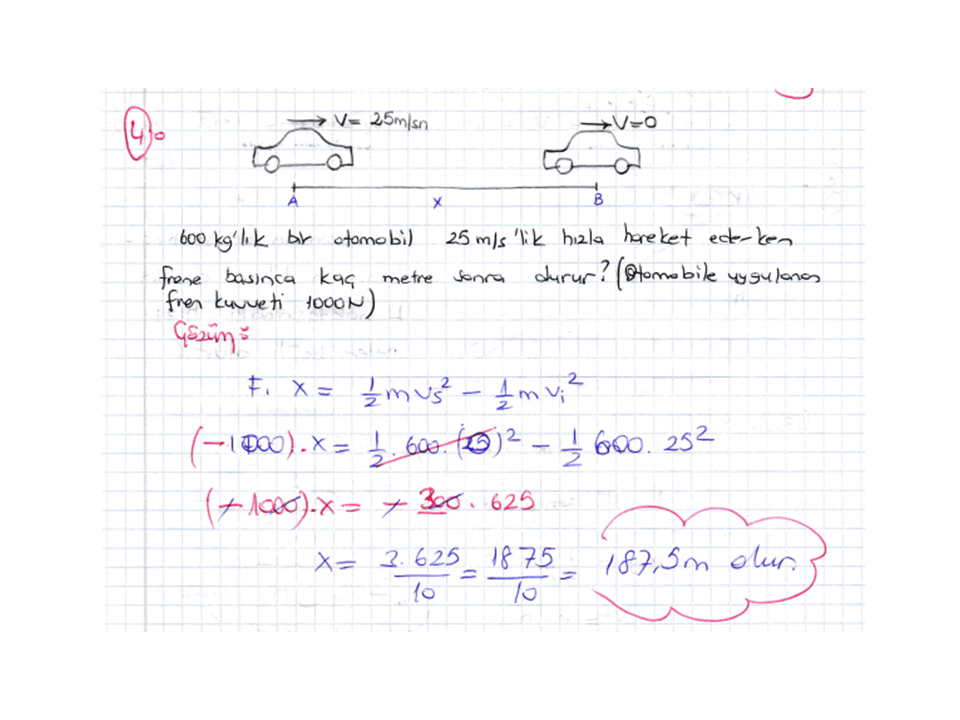 4)
V= 25m/sn V=0
A x B
600 kg'lık bir otomobil 25 m/s 'lik hızla hareket ederken
frene basınca kaç metre sonra durur? (Otomobile uygulanan
fren kuvveti 1000N)
Çözüm:
F. x = 1/2 m Vs² - 1/2 m Vi²
(-1000).x = 1/2 . 600. (0)² - 1/2 600. 25²
(-1000).x = - 300. 625
x = 3.625/10 = 1875/10 = 187,5m olur.